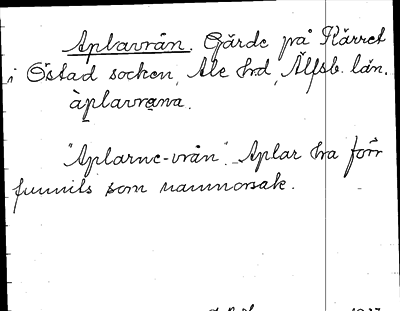 Aplavrån. Gärde på Kärret
i Östad socken, Ale hrd, Älfsb. län.
àplavrana.
"Aplarne-vrån". Aplar ha förr
funnits som namnorsak.